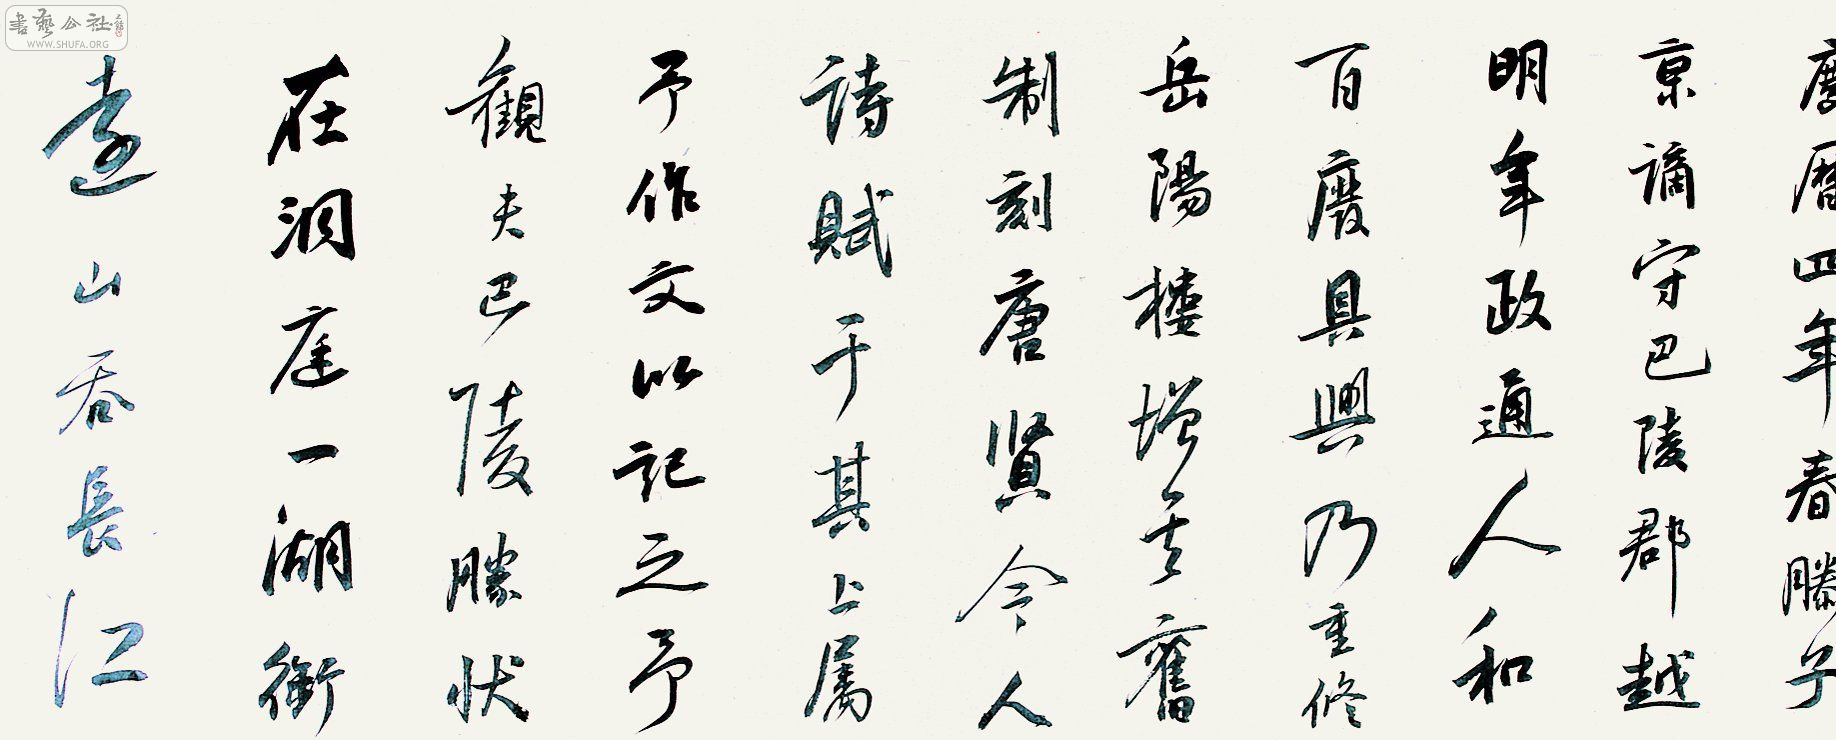 慶曆四年春滕子
京謫守巴陵郡越
明年政通人和
百廢具興乃重修
岳陽樓增其舊
制刻唐賢今人
詩賦于其上屬
予作文以記之予
觀夫巴陵勝狀
在洞庭一湖銜
遠山吞長江
書藝公社
WWW.SHUFA.ORG